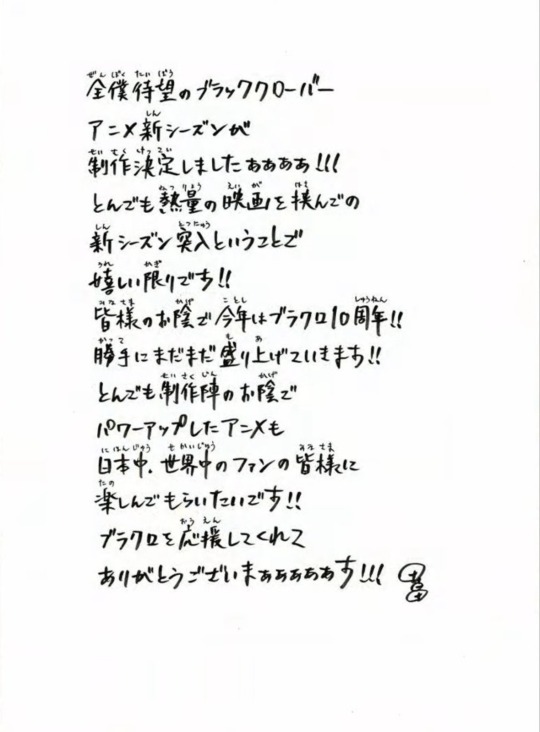 全僕待望のブラッククローバー
アニメ新シーズンが
制作決定しましたぁぁぁぁ!!!
とんでも熱量の映画を挟んでの
新シーズン突入ということで
嬉しい限りです!!
皆様のお陰で今年はブラクロ10周年!!
勝手にまだまだ盛り上げていきます!!
とんでも制作陣のお陰で
パワーアップしたアニメも
日本中、世界中のファンの皆様に
楽しんでもらいたいです!!
ブラクロを応援してくれて
ありがとうございまぁぁぁぁぁす!!!